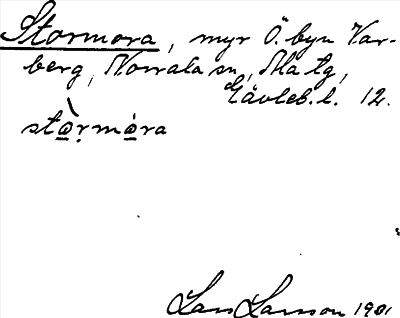 Stormora, myr Ö. byn Var-
berg, Norrala sn, Ala tg,
Gävleb. l. 12.
stò̱ṛmó̱ra
Lars Larsson 1901